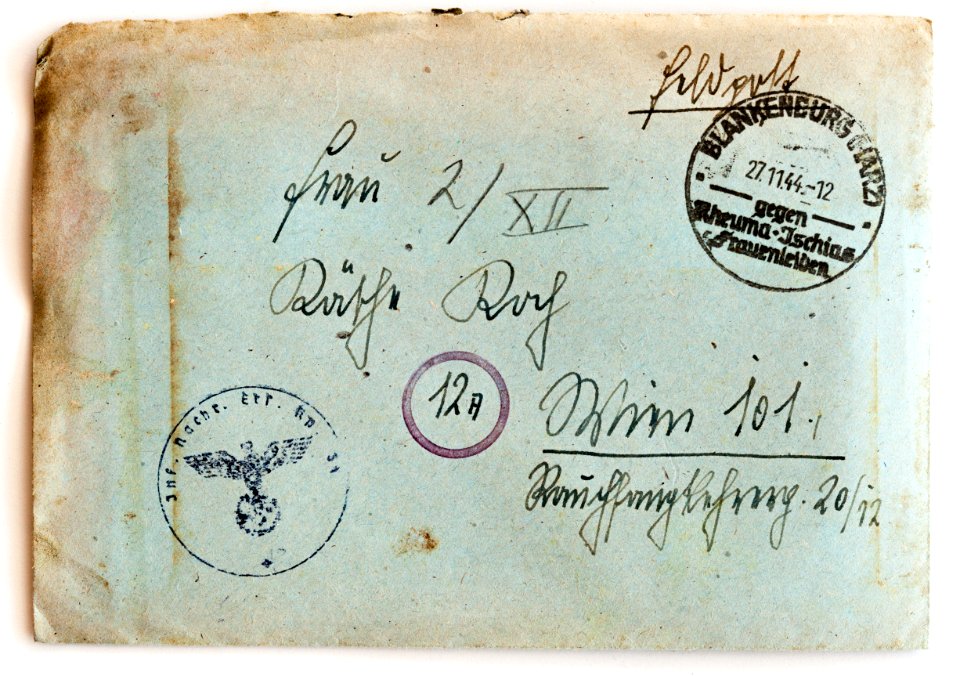 Feldpost
BLANKENBURG (HARZ)
27.11.44.-12
gegen
Rheuma-Ischias
Frauenleiden
Frau 2/XII
Käthe Koch
12A
Wien 101.
Rauchfangkehrerg. 20/12
Inf. Nachr. Ers.